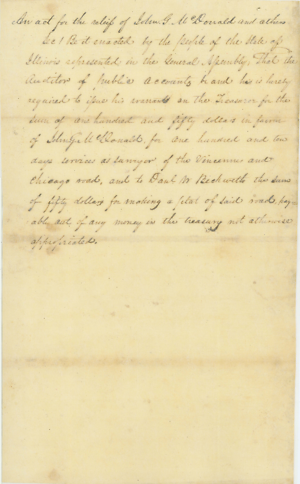 An act for the relief of John G. McDonald and others
Sec 1 Be it enacted by the People of the State of
Illinois represented in the General Assembly, That the
Auditor of Public Accounts be and he is hereby
required to issue his warrants on the Treasurer for the
sum of one hundred and fifty dollars in favor
of John G McDonald, for one hundred and ten
days services as surveyor of the Vincennes and
Chicago road, and to Danl W Beckwith the sum
of fifty dollars for making a plat of said road, pay
able out of any money in the treasury not otherwise
appropriated.